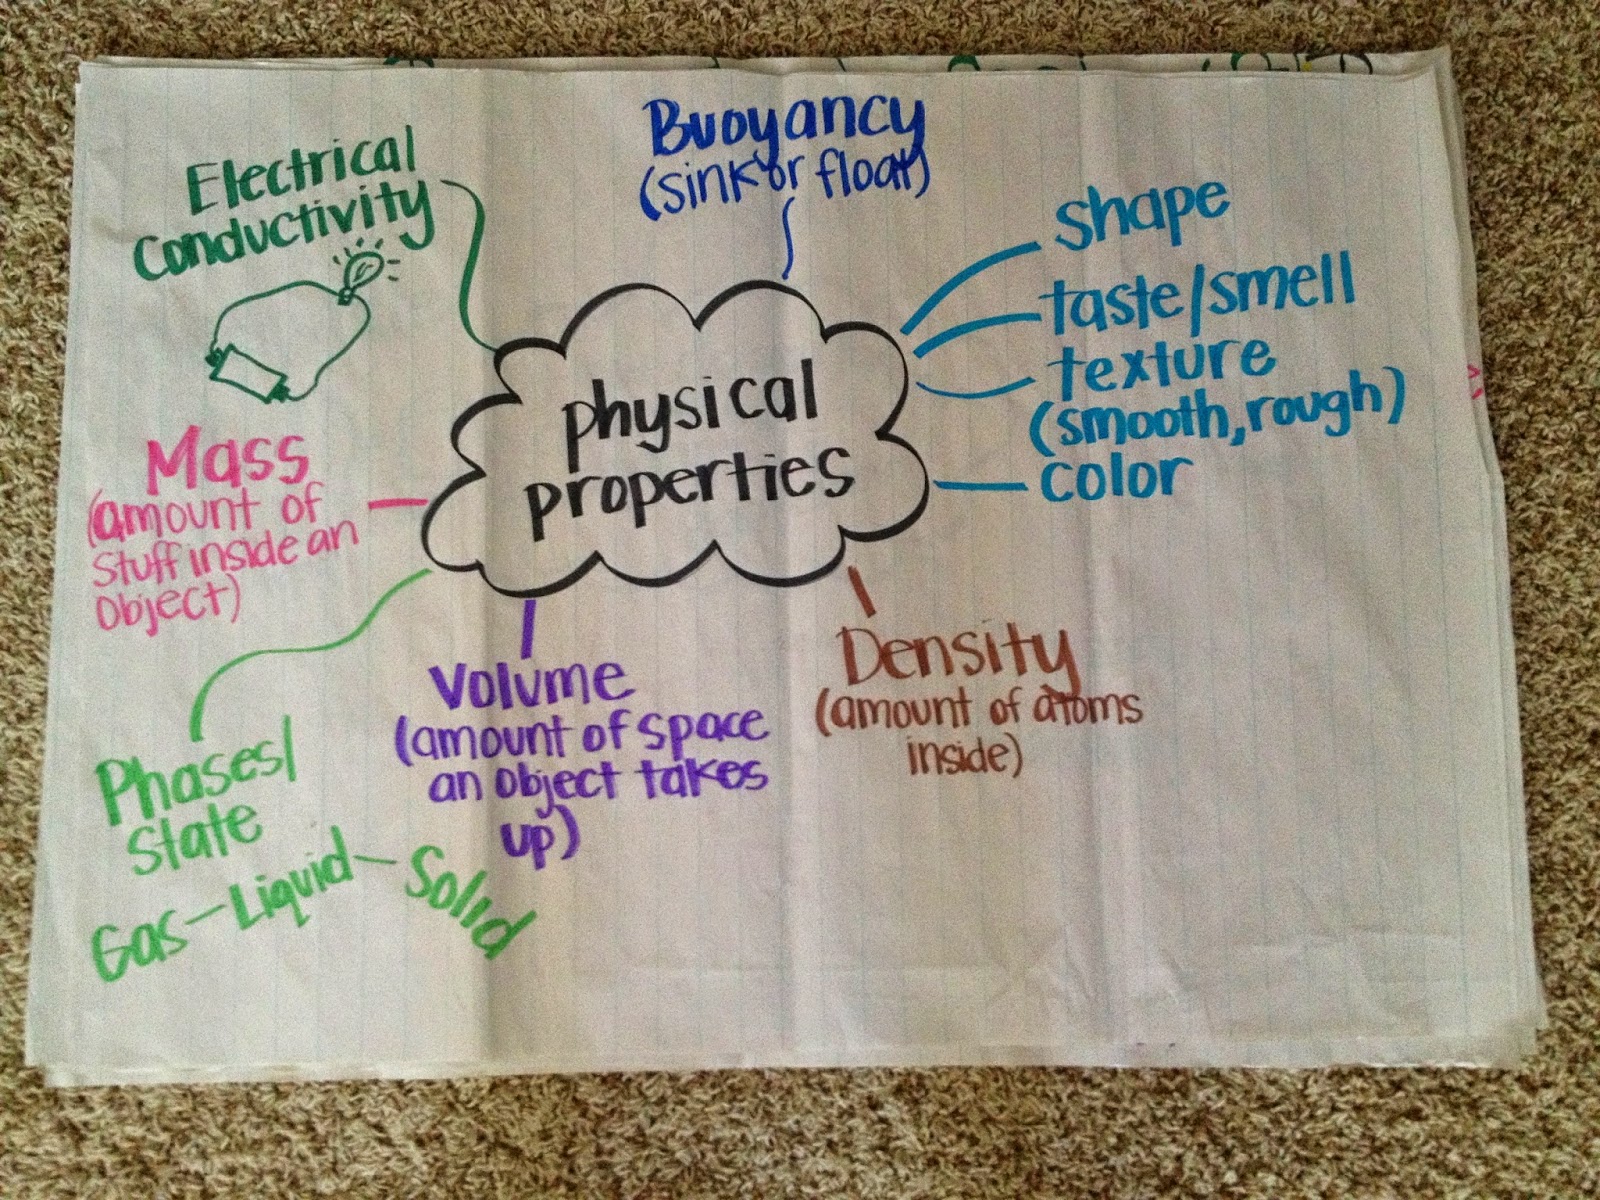 Buoyancy
(sink or float)
Electrical
Conductivity
shape
taste/smell
texture
(smooth, rough)
color
physical
properties
Mass
(amount of
stuff inside an
object)
Volume
(amount of space
an object takes
up)
Density
(amount of atoms
inside)
Phases/
state
Gas-Liquid-Solid